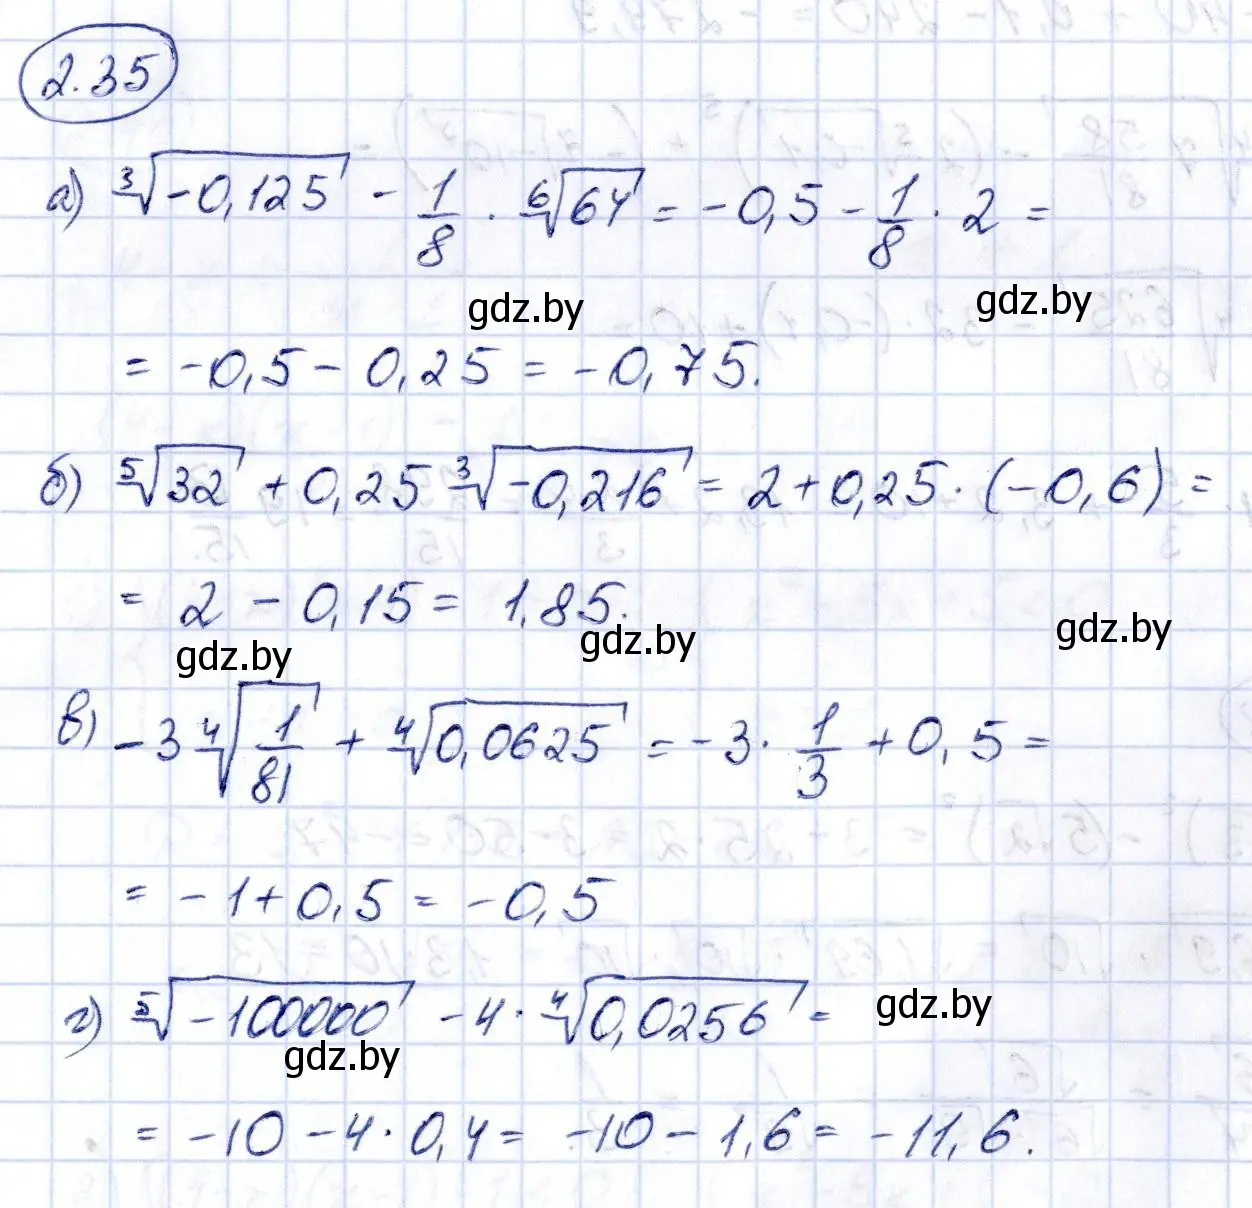 2.35
а) ∛(-0,125) - 1/8 · ⁶√64 = -0,5 - 1/8 · 2 =
gdz.by gdz.by
= -0,5 - 0,25 = -0,75.
б) ⁵√32 + 0,25 ∛(-0,216) = 2 + 0,25 · (-0,6) =
= 2 - 0,15 = 1,85.
gdz.by gdz.by gdz.by
в) -3 ⁴√(1/81) + ⁴√0,0625 = -3 · 1/3 + 0,5 =
= -1 + 0,5 = -0,5
г) ⁵√(-100000) - 4 · ⁴√0,0256 =
gdz.by gdz.by
= -10 - 4 · 0,4 = -10 - 1,6 = -11,6.